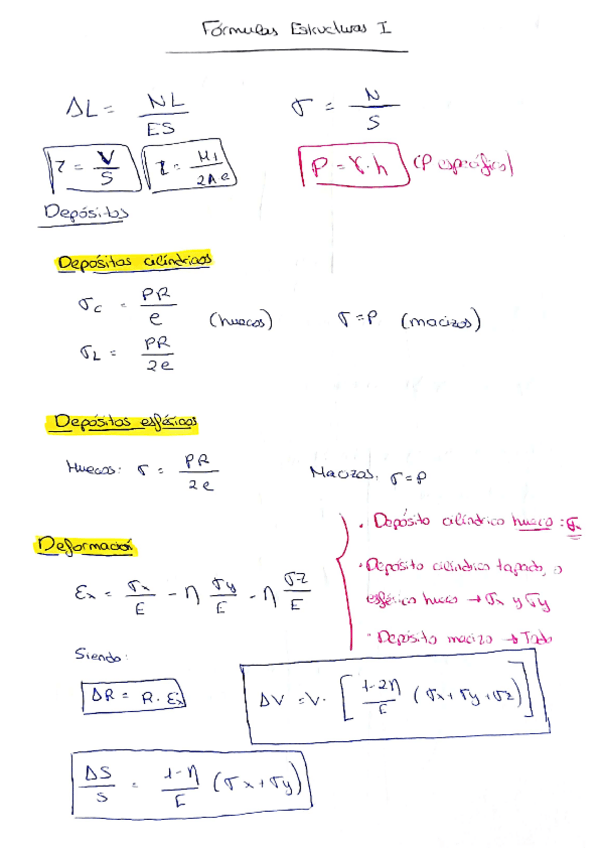 Fórmulas Estructuras I
ΔL = NL/ES    σ = N/S
τ = V/S    τ = M1/2Ae    P = γ·h (P específico)
Depósitos
Depósitos cilíndricos
σc = PR/e    (huecos)    σ = P (macizos)
σL = PR/2e
Depósitos esféricos
Huecos: σ = PR/2e    Macizos: σ = P
Deformación
· Depósito cilíndrico hueco: σx
· Depósito cilíndrico tapado, o
esférico hueco → σx y σy
· Depósito macizo → Todo
Ɛx = σx/E - η σy/E - η σz/E
Siendo:
ΔR = R · Ɛx    ΔV = V · [1-2η/E (σx + σy + σz)]
ΔS/S = 1-η/E (σx + σy)